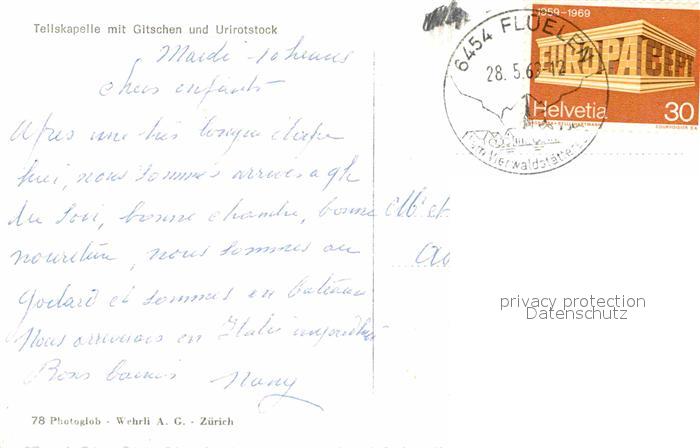 Tellskapelle mit Gitschen und Urirotstock
Mardi 10 heures
chers enfants
Apres une très longue étape
hier, nous sommes arrives a 9h
du soir, bonne chambre, bonne
nouriture, nous sommes au
et sommes en bateau
Nous arriverons en Italie
Bons baisers Nany
78 Photoglob - Wehrli A. G. - Zürich
6454 FLÜELEN
28.5.69-12
Vierwaldstätter
1959-1969
EUROPA CEPT
Helvetia 30
COURVOISIER S.A.
M. et
privacy protection
Datenschutz